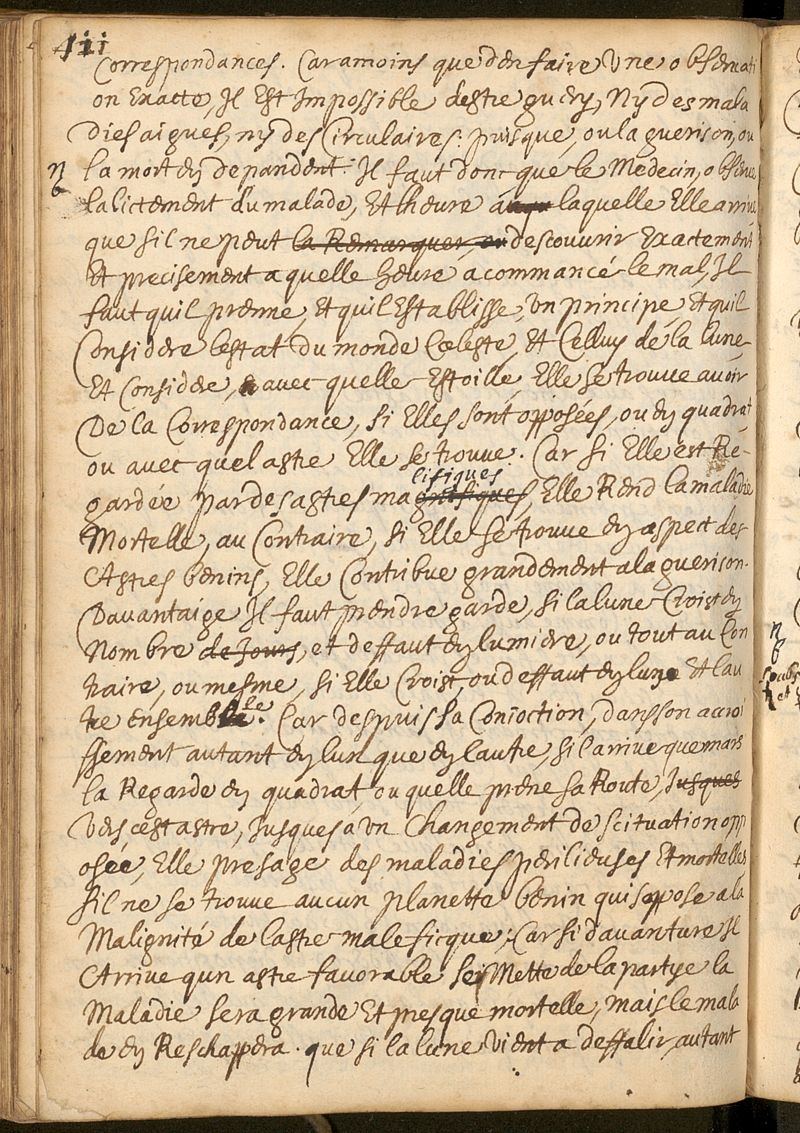 iii
Correspondances. Car a moins que d'en faire Une observati
on Exacte, Il Est Impossible destre guery, Ny des mala
dies aigues, ny des Circulaires: puisque, ou la guerison, ou
la mort en depandent: Il faut donc que le Medecin, observe
lalictement du malade, Et lheure a laquelle Elle arrive
que sil ne peut la Remarquer, ou descouvrir Exactement
Et precisement a quelle heure a commancé le mal, Il
faut quil prenne, Et quil Establisse, Un principe, Et quil
Considere lestat du monde Cœleste, Et Celluy de la lune
Et Considere, avec quelle Estoille, Elle se trouve avoir
De la Correspondance, si Elles sont opposées, ou en quadrat
ou avec quel astre Elle se trouve. Car si Elle est Re-
lifiques
gardée par des astres magnifiques, Elle Rend la maladie
Mortelle, au Contraire, si Elle se trouve en aspect des
Astres benins, Elle Contribue grandement a la guerison.
Davantaige Il faut prendre garde, si la lune Croist en
Nombre de Jours, et deffaut en lumiere, ou tout au Con
traire, ou mesme, si Elle Croist, ou deffaut en lung Et lau
tre ensemble. Car despuis sa Conioction, dans son accroi
ssement autant en lun que en lautre, sil arrive que mars
la Regarde en quadrat, ou quelle prene sa Route, Jusques
vers cest astre, Jusques a Un Changement de scituation opp
osée, Elle presage des maladies perilieuses Et mortelles
sil ne se trouve aucun planette benin qui soppose a la
Malignité de lastre maleficque; Car si davanture Il
Arrive qun astre favorable sey Mette de la partye la
Maladie sera grande Et presque mortelle, mais le mala
de en Reschappera. que si la lune vient a deffalir, autant